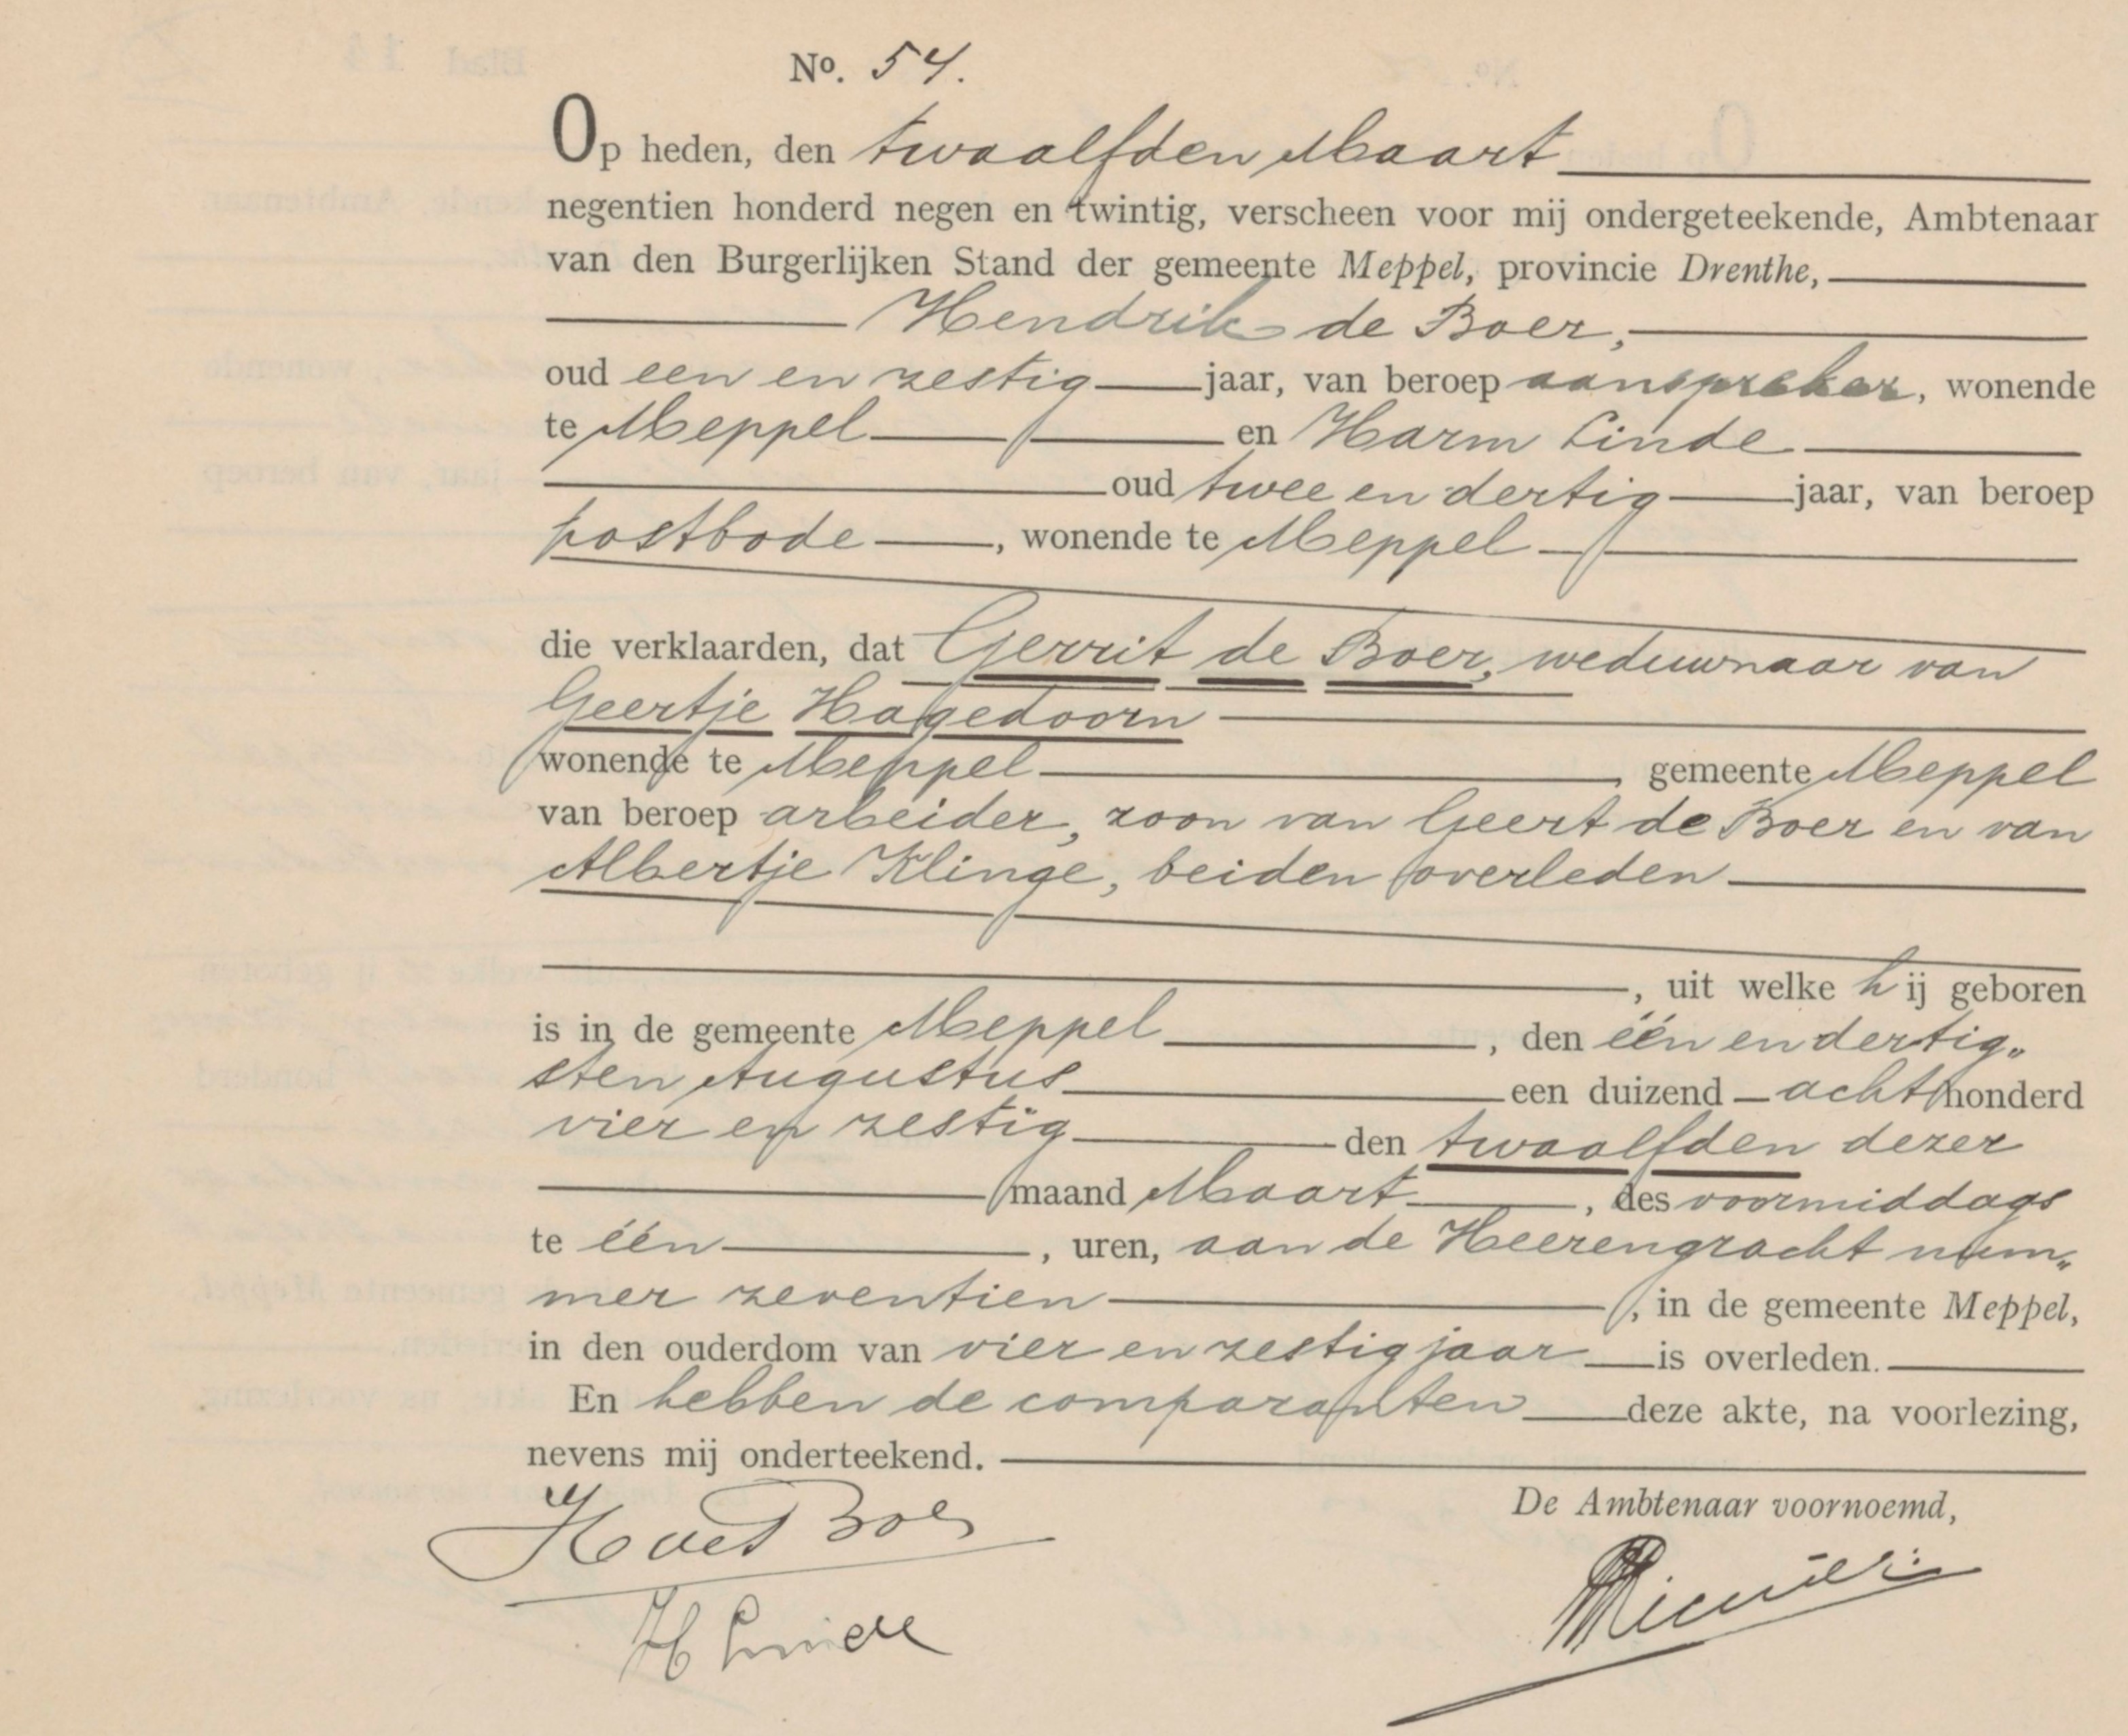 No. 54.
Op heden, den twaalfden Maart
negentien honderd negen en twintig, verscheen voor mij ondergeteekende, Ambtenaar
van den Burgerlijken Stand der gemeente Meppel, provincie Drenthe,
Hendrik de Boer,
oud een en zestig jaar, van beroep aanspreker, wonende
te Meppel en Harm Linde
oud twee en dertig jaar, van beroep
postbode, wonende te Meppel
die verklaarden, dat Gerrit de Boer, weduwnaar van
Geertje Hagedoorn
wonende te Meppel gemeente Meppel
van beroep arbeider, zoon van Geert de Boer en van
Albertje Klinge, beiden overleden
, uit welke hij geboren
is in de gemeente Meppel, den één en dertig„
sten Augustus een duizend achthonderd
vier en zestig den twaalfden dezer
maand Maart, des voormiddags
te één, uren, aan de Heerengracht num„
mer zeventien, in de gemeente Meppel,
in den ouderdom van vier en zestig jaar is overleden.
En hebben de comparanten deze akte, na voorlezing,
nevens mij onderteekend.
De Ambtenaar voornoemd,
H de Boer
H Linde